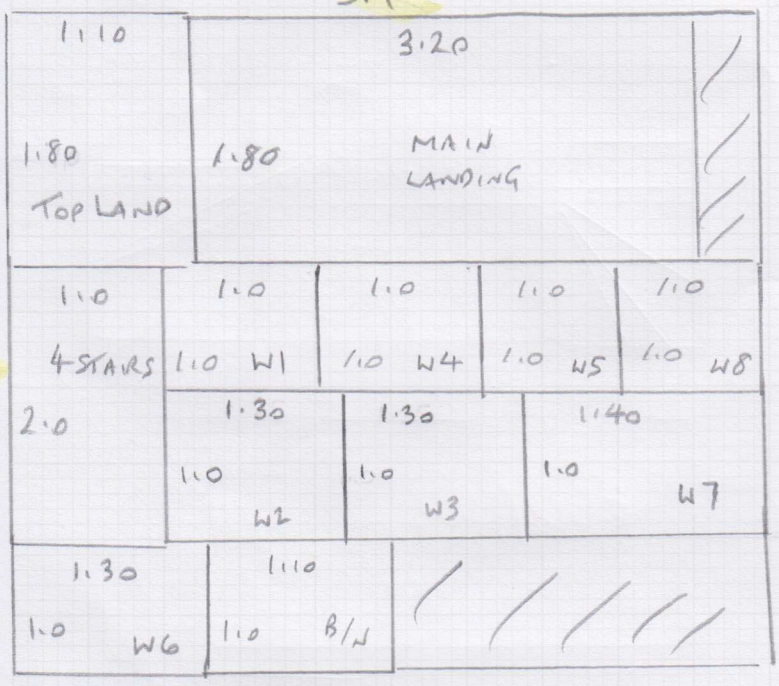 1.10
3.20
1.80
TOP LAND
1.80
MAIN
LANDING
1.0
4 STAIRS
2.0
1.0
1.0 W1
1.0
1.0 W4
1.0
1.0 W5
1.0
1.0 W8
1.30
1.0
W2
1.30
1.0
W3
1.40
1.0
W7
1.30
1.0 W6
1.10
1.0 B/N